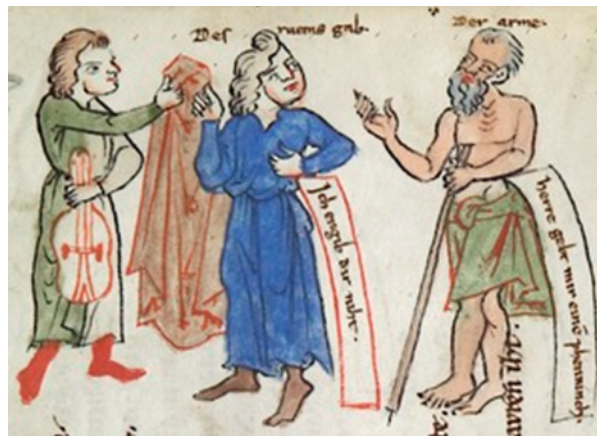 Der ruems gab.
Der arme.
Ich engib dir niht.
herre gebt mir einē phenninch.